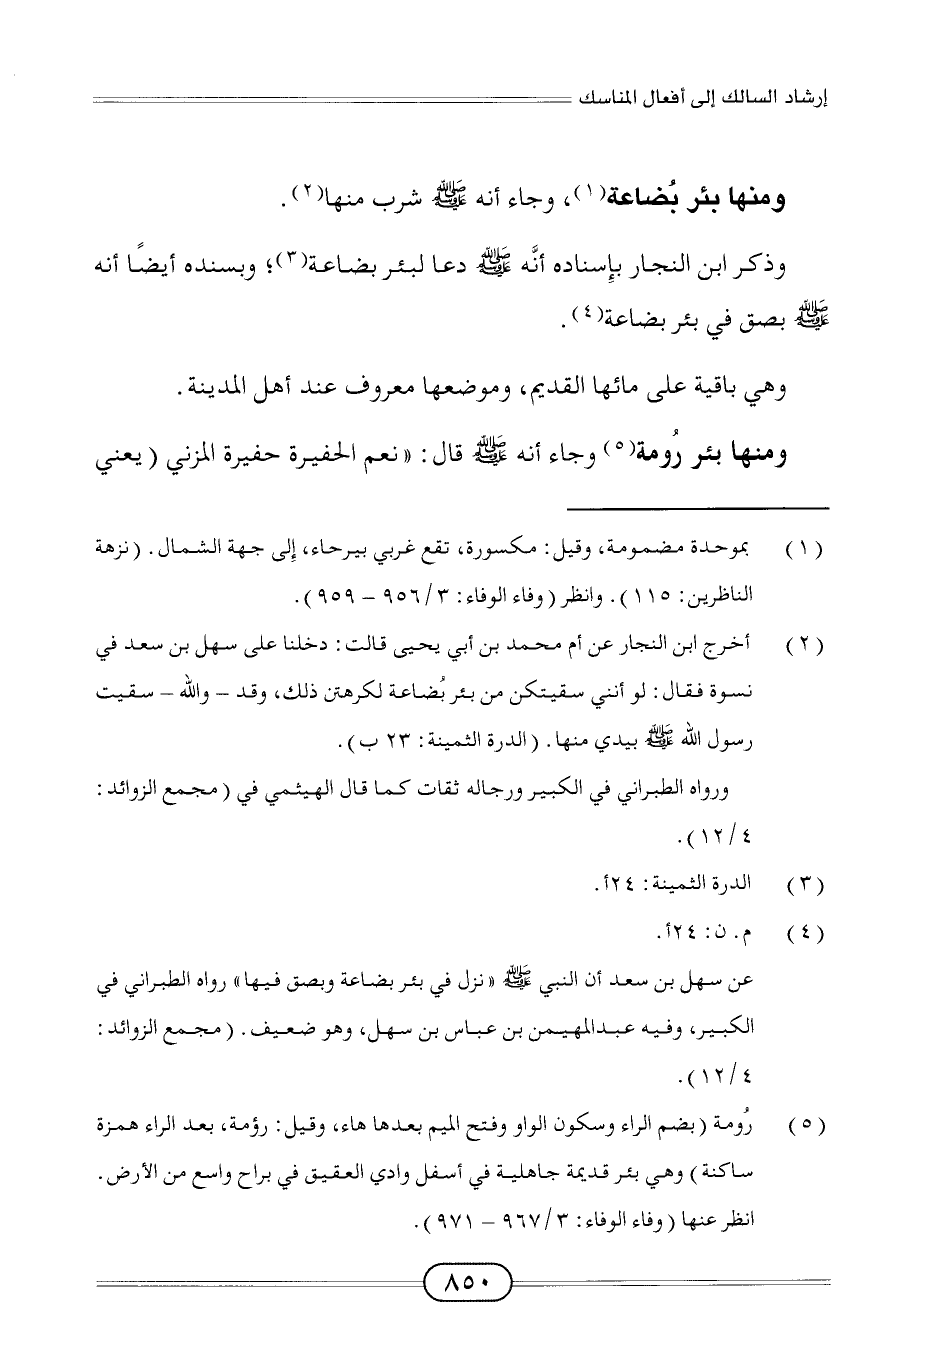 إرشاد السالك إلى أفعال المناسك
ومنها بئر بُضاعة(١)، وجاء أنه ﷺ شرب منها(٢).
وذكر ابن النجار بإسناده أنَّه ﷺ دعا لبئر بضاعة(٣)؛ وبسنده أيضًا أنه
ﷺ بصق في بئر بضاعة(٤).
وهي باقية على مائها القديم، وموضعها معروف عند أهل المدينة.
ومنها بئر رُومة(٥) وجاء أنه ﷺ قال: «نعم الحفيرة حفيرة المزني (يعني
(١) بموحدة مضمومة، وقيل: مكسورة، تقع غربي بيرحاء، إلى جهة الشمال. (نزهة
الناظرين: ١١٥). وانظر (وفاء الوفاء: ٩٥٦/٣ – ٩٥٩).
(٢) أخرج ابن النجار عن أم محمد بن أبي يحيى قالت: دخلنا على سهل بن سعد في
نسوة فقال: لو أنني سقيتكن من بئر بُضاعة لكرهتن ذلك، وقد – والله – سقيت
رسول الله ﷺ بيدي منها. (الدرة الثمينة: ٢٣ ب).
ورواه الطبراني في الكبير ورجاله ثقات كما قال الهيثمي في (مجمع الزوائد:
١٢/٤).
(٣) الدرة الثمينة: ٢٤أ.
(٤) م. ن: ٢٤أ.
عن سهل بن سعد أن النبي ﷺ «نزل في بئر بضاعة وبصق فيها» رواه الطبراني في
الكبير، وفيه عبدالمهيمن بن عباس بن سهل، وهو ضعيف. (مجمع الزوائد:
١٢/٤).
(٥) رُومة (بضم الراء وسكون الواو وفتح الميم بعدها هاء، وقيل: رؤمة، بعد الراء همزة
ساكنة) وهي بئر قديمة جاهلية في أسفل وادي العقيق في براح واسع من الأرض.
انظر عنها (وفاء الوفاء: ٩٦٧/٣ – ٩٧١).
٨٥٠